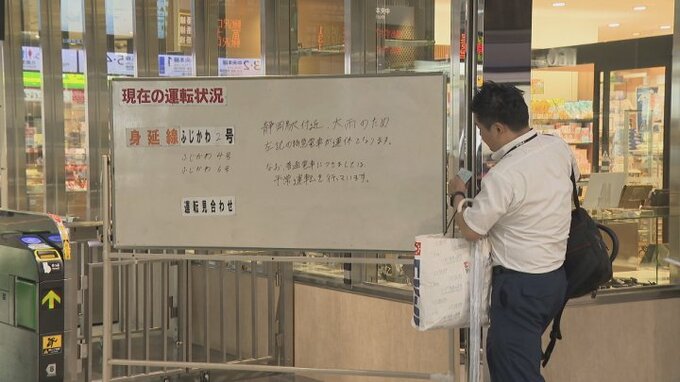 現在の運転状況
身延線 ふじかわ2号
ふじかわ4号
ふじかわ6号
運転見合わせ
静岡駅付近、大雨のため
左記の特急電車が運休となります。
なお、普通電車につきましては、
平常運転を行っています。